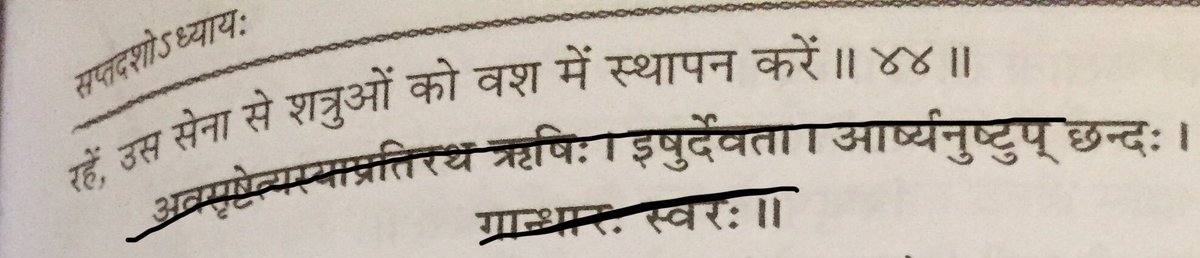 सप्तदशोऽध्यायः
रहें, उस सेना से शत्रुओं को वश में स्थापन करें॥ ४४॥
अवसृष्टेत्यस्याप्रतिरथ ऋषिः। इषुर्देवता। आर्ष्यनुष्टुप् छन्दः।
गान्धारः स्वरः॥